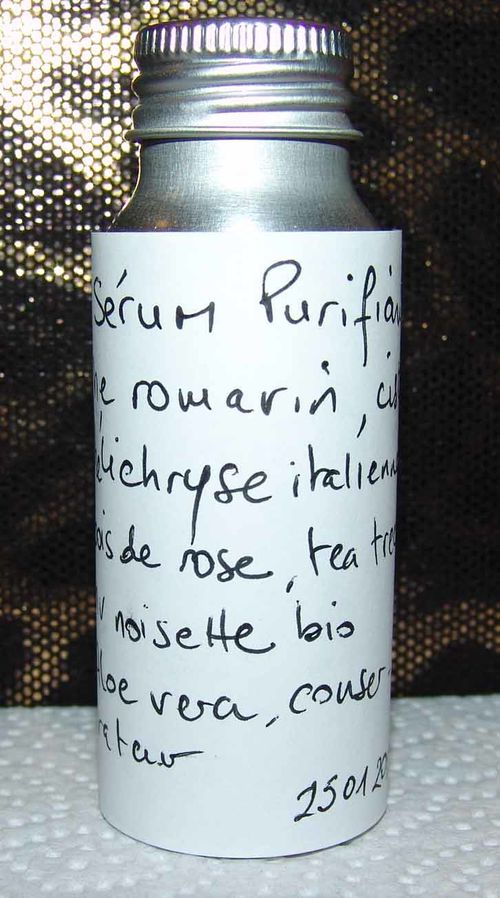 Sérum Purifian
e romarin, cis
élichryse italienn
ois de rose, tea tree
v noisette bio
loe vera, conser-
rateur
250120